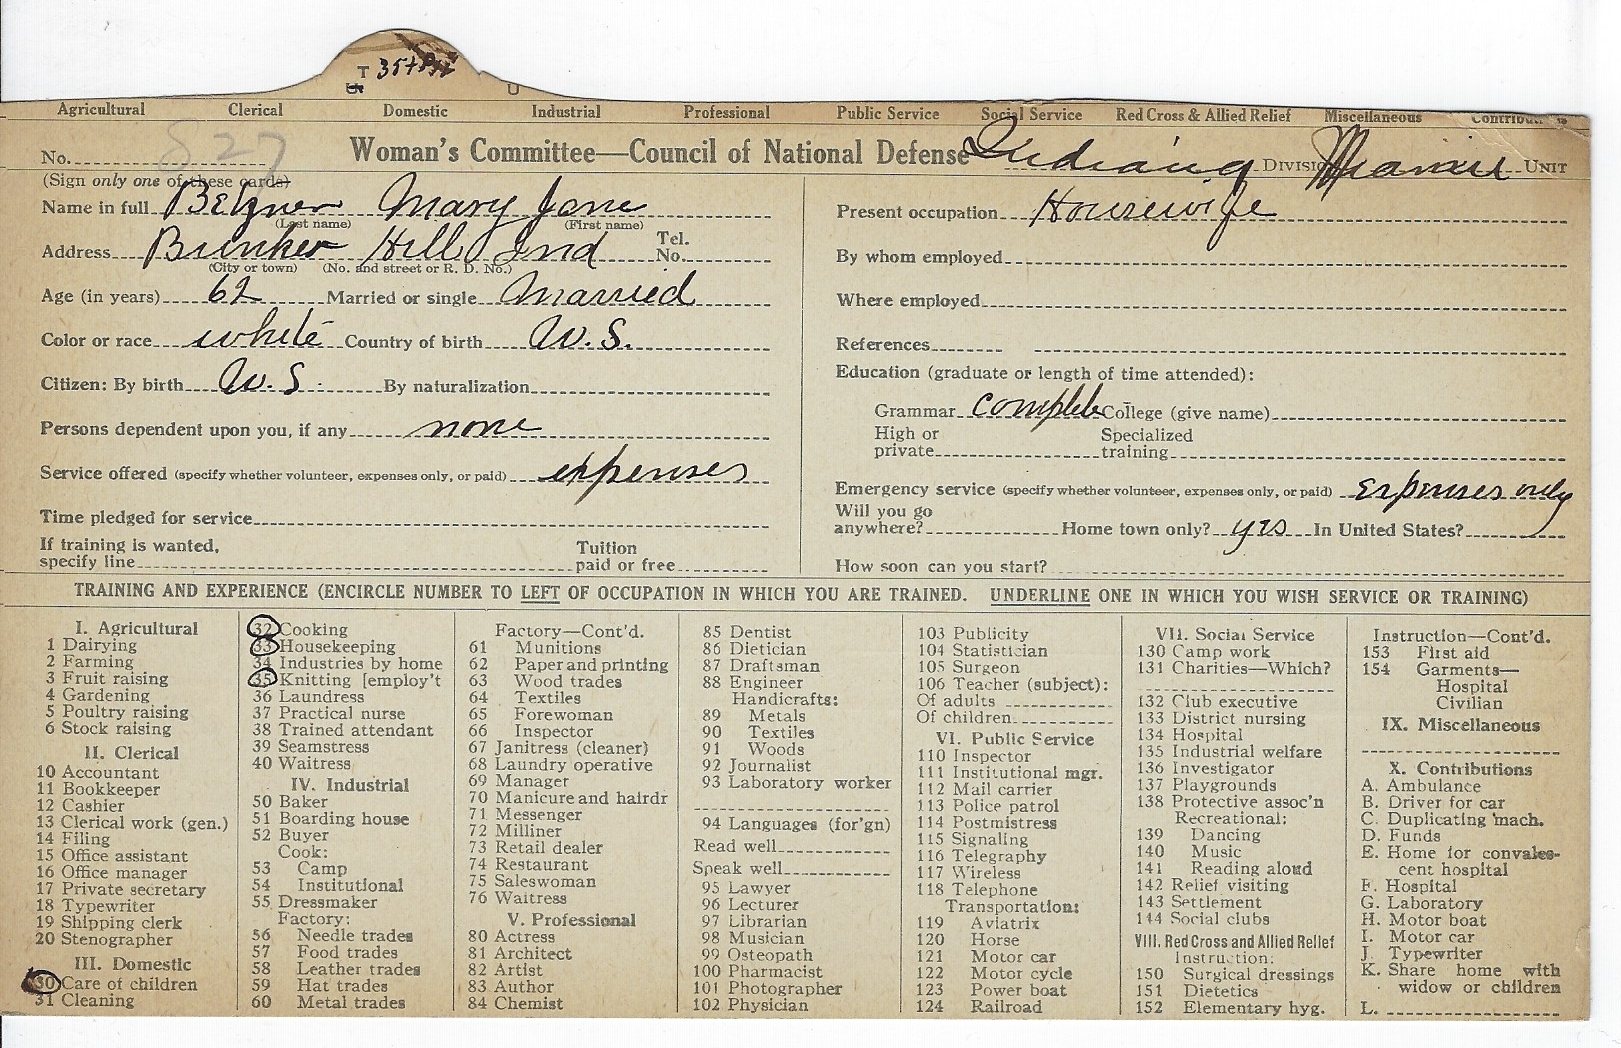 T 35+
U
Agricultural Clerical Domestic Industrial Professional Public Service Social Service Red Cross & Allied Relief Miscellaneous
No. 827 Woman's Committee—Council of National Defense Indiana Division Miami Unit
(Sign only one of these cards)
Name in full Betzner Mary Jane
(Last name) (First name)
Address Bunker Hill Ind Tel. No.
(City or town) (No. and street or R. D. No.)
Age (in years) 62 Married or single Married
Color or race white Country of birth U.S.
Citizen: By birth U.S. By naturalization
Persons dependent upon you, if any none
Service offered (specify whether volunteer, expenses only, or paid) expenses
Time pledged for service
If training is wanted, specify line Tuition paid or free
Present occupation Housewife
By whom employed
Where employed
References
Education (graduate or length of time attended):
Grammar complete College (give name)
High or private Specialized training
Emergency service (specify whether volunteer, expenses only, or paid) Expenses only
Will you go anywhere? Home town only? yes In United States?
How soon can you start?
TRAINING AND EXPERIENCE (ENCIRCLE NUMBER TO LEFT OF OCCUPATION IN WHICH YOU ARE TRAINED. UNDERLINE ONE IN WHICH YOU WISH SERVICE OR TRAINING)
I. Agricultural
1 Dairying
2 Farming
3 Fruit raising
4 Gardening
5 Poultry raising
6 Stock raising
II. Clerical
10 Accountant
11 Bookkeeper
12 Cashier
13 Clerical work (gen.)
14 Filing
15 Office assistant
16 Office manager
17 Private secretary
18 Typewriter
19 Shipping clerk
20 Stenographer
III. Domestic
30 Care of children
31 Cleaning
32 Cooking
33 Housekeeping
34 Industries by home
35 Knitting [employ't
36 Laundress
37 Practical nurse
38 Trained attendant
39 Seamstress
40 Waitress
IV. Industrial
50 Baker
51 Boarding house
52 Buyer
Cook:
53 Camp
54 Institutional
55 Dressmaker
Factory:
56 Needle trades
57 Food trades
58 Leather trades
59 Hat trades
60 Metal trades
Factory—Cont'd.
61 Munitions
62 Paper and printing
63 Wood trades
64 Textiles
65 Forewoman
66 Inspector
67 Janitress (cleaner)
68 Laundry operative
69 Manager
70 Manicure and hairdr
71 Messenger
72 Milliner
73 Retail dealer
74 Restaurant
75 Saleswoman
76 Waitress
V. Professional
80 Actress
81 Architect
82 Artist
83 Author
84 Chemist
85 Dentist
86 Dietician
87 Draftsman
88 Engineer
Handicrafts:
89 Metals
90 Textiles
91 Woods
92 Journalist
93 Laboratory worker
94 Languages (for'gn)
Read well
Speak well
95 Lawyer
96 Lecturer
97 Librarian
98 Musician
99 Osteopath
100 Pharmacist
101 Photographer
102 Physician
103 Publicity
104 Statistician
105 Surgeon
106 Teacher (subject):
Of adults
Of children
VI. Public Service
110 Inspector
111 Institutional mgr.
112 Mail carrier
113 Police patrol
114 Postmistress
115 Signaling
116 Telegraphy
117 Wireless
118 Telephone
Transportation:
119 Aviatrix
120 Horse
121 Motor car
122 Motor cycle
123 Power boat
124 Railroad
VII. Social Service
130 Camp work
131 Charities—Which?
132 Club executive
133 District nursing
134 Hospital
135 Industrial welfare
136 Investigator
137 Playgrounds
138 Protective assoc'n
Recreational:
139 Dancing
140 Music
141 Reading aloud
142 Relief visiting
143 Settlement
144 Social clubs
VIII. Red Cross and Allied Relief
Instruction:
150 Surgical dressings
151 Dietetics
152 Elementary hyg.
Instruction—Cont'd.
153 First aid
154 Garments—
Hospital
Civilian
IX. Miscellaneous
X. Contributions
A. Ambulance
B. Driver for car
C. Duplicating mach.
D. Funds
E. Home for convales-
cent hospital
F. Hospital
G. Laboratory
H. Motor boat
I. Motor car
J. Typewriter
K. Share home with
widow or children
L.